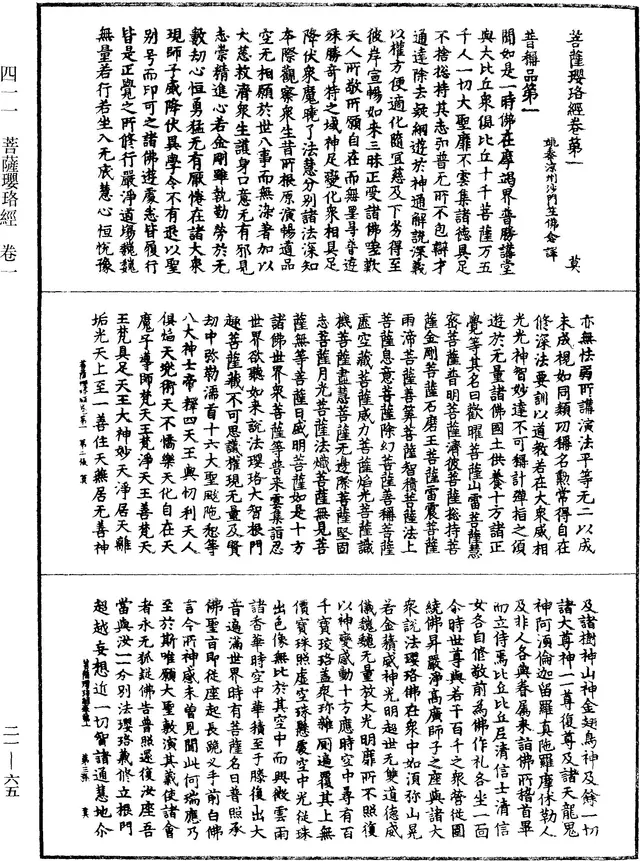 四一一 菩薩瓔珞經 卷一
二一—六五
菩薩瓔珞經卷第一 莫
姚秦涼州沙門竺佛念譯
普稱品第一
聞如是一時佛在摩竭界普勝講堂
與大比丘衆俱比丘十千菩薩万五
千人一切大聖靡不雲集諸德具足
不捨捴持其志普无所不包辯才
通達除去疑網遊於神通解說深義
以權方便適化隨宜慈及下劣得至
彼岸宣暢如來三昧正受諸佛聖歎
天人所敬所願自在而無罣㝵遊
殊勝奇特之域神足變化衆相具足
降伏衆魔曉了法慧分別諸法深知
本際觀察衆生昔所根原演暢道品
空无相願於世八事而無染著加以
大慈救濟衆生護身口意无有邪見
志崇精進心若金剛雖執勤勞於无
數劫心恒勇猛无有厭惓在諸大衆
現師子威降伏異學令不有退以聖
別号而印可之諸佛遊處悉皆履行
皆是正覺之所修行嚴淨道場巍巍
無量若行若坐入无底慧心恒悅豫
亦無怯弱所講演法平等无二以成
未成視如同類功稱名勲常得自在
修深法要訓以道教若在大衆威相
光光神智妙達不可稱計彈指之頃
遊於无量諸佛國土供養十方諸正
覺等其名曰歡曜菩薩山雷菩薩慧
密菩薩普明菩薩濟彼菩薩捴持菩
薩金剛菩薩石磨王菩薩雷震菩薩
雨渧菩薩善筭菩薩智積菩薩法上
菩薩息意菩薩除幻菩薩善稱菩薩
虛空藏菩薩威力菩薩焰光菩薩識
機菩薩盡慧菩薩无邊際菩薩堅固
志菩薩月光菩薩法熾菩薩無見菩
薩無等菩薩日威明菩薩如是十方
諸佛世界衆菩薩等普來雲集詣忍
世界欲聽如來說法瓔珞大智根門
趣菩薩藏不可思議權現无量及賢
劫中弥勒濡首十六大聖颰陁惒等
八大神士帝釋四天王與忉利天人
俱焰天兜術天不憍樂天化自在天
魔子導師梵天王梵淨天王善梵天
王梵具足天王大神妙天淨居天離
垢光天上至一善住天燕居无善神
菩薩瓔珞經卷第一 第二張 莫
及諸樹神山神金翅鳥神及餘一切
諸大尊神一一尊復尊及諸天龍鬼
神阿湏倫迦留羅真陁羅摩休勒人
及非人各與眷屬來詣佛所稽首畢
而立侍焉比丘比丘尼清信士清信
女各自修敬前為佛作礼各坐一面
尒時世尊與若干百千之衆營從圍
繞佛昇嚴淨高廣師子之座與諸大
衆說法瓔珞佛在衆中如湏弥山晃
若金積威神光明超世无雙道德威
儀巍巍无量放大光明靡所不照復
以神變感動十方應時空中尋有百
千寶珓珞蓋衆珎雜廁遍覆其上無
價寶珠照虛空珠懸處空中光從珠
出色像無比於其空中而興微雲雨
諸香華時空中華積至于膝復出大
普遍滿世界時有菩薩名曰普照承
佛聖旨即從座起長跪叉手前白佛
言今所神感未曽見聞此何瑞應乃
至於斯唯願大聖敷演其義使諸會
者永无狐疑佛告普照還復汝座吾
當與汝一一分別法瓔珞義修立根門
超越妄想近一切智諸通慧地介
菩薩瓔珞經卷第一 第三張 莫